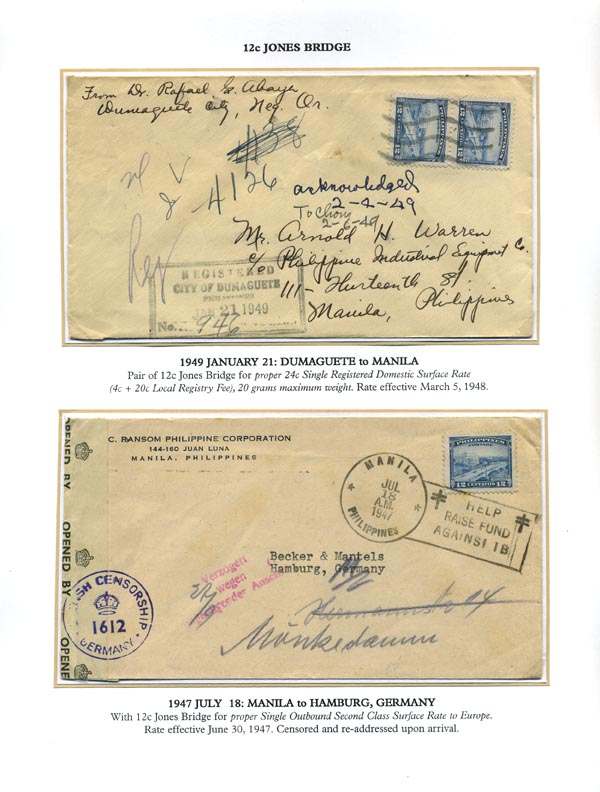 12c JONES BRIDGE
From Dr. Rafael G. Abaya
Dumaguete City, Neg. Or.
4126
Reg
acknowledged
2-4-49
To Chong
2-6-49
Mr. Arnold H. Warren
c/o Philippine Industrial Equipment Co.
111 - Thirteenth St.
Manila, Philippines
REGISTERED
CITY OF DUMAGUETE
JAN 21 1949
No. 946
1949 JANUARY 21: DUMAGUETE to MANILA
Pair of 12c Jones Bridge for proper 24c Single Registered Domestic Surface Rate
(4c + 20c Local Registry Fee), 20 grams maximum weight. Rate effective March 5, 1948.
OPENED BY
OPENED BY
OPENE
C. RANSOM PHILIPPINE CORPORATION
144-160 JUAN LUNA
MANILA, PHILIPPINES
PHILIPPINES
12 CENTAVOS 12
MANILA
JUL
18
A.M.
1947
PHILIPPINES
HELP
RAISE FUND
AGAINST TB
Becker & Mantels
Hamburg, Germany
Verzogert
wegen
SH CENSORSHIP
1612
GERMANY
Mönkedamm
1947 JULY 18: MANILA to HAMBURG, GERMANY
With 12c Jones Bridge for proper Single Outbound Second Class Surface Rate to Europe.
Rate effective June 30, 1947. Censored and re-addressed upon arrival.